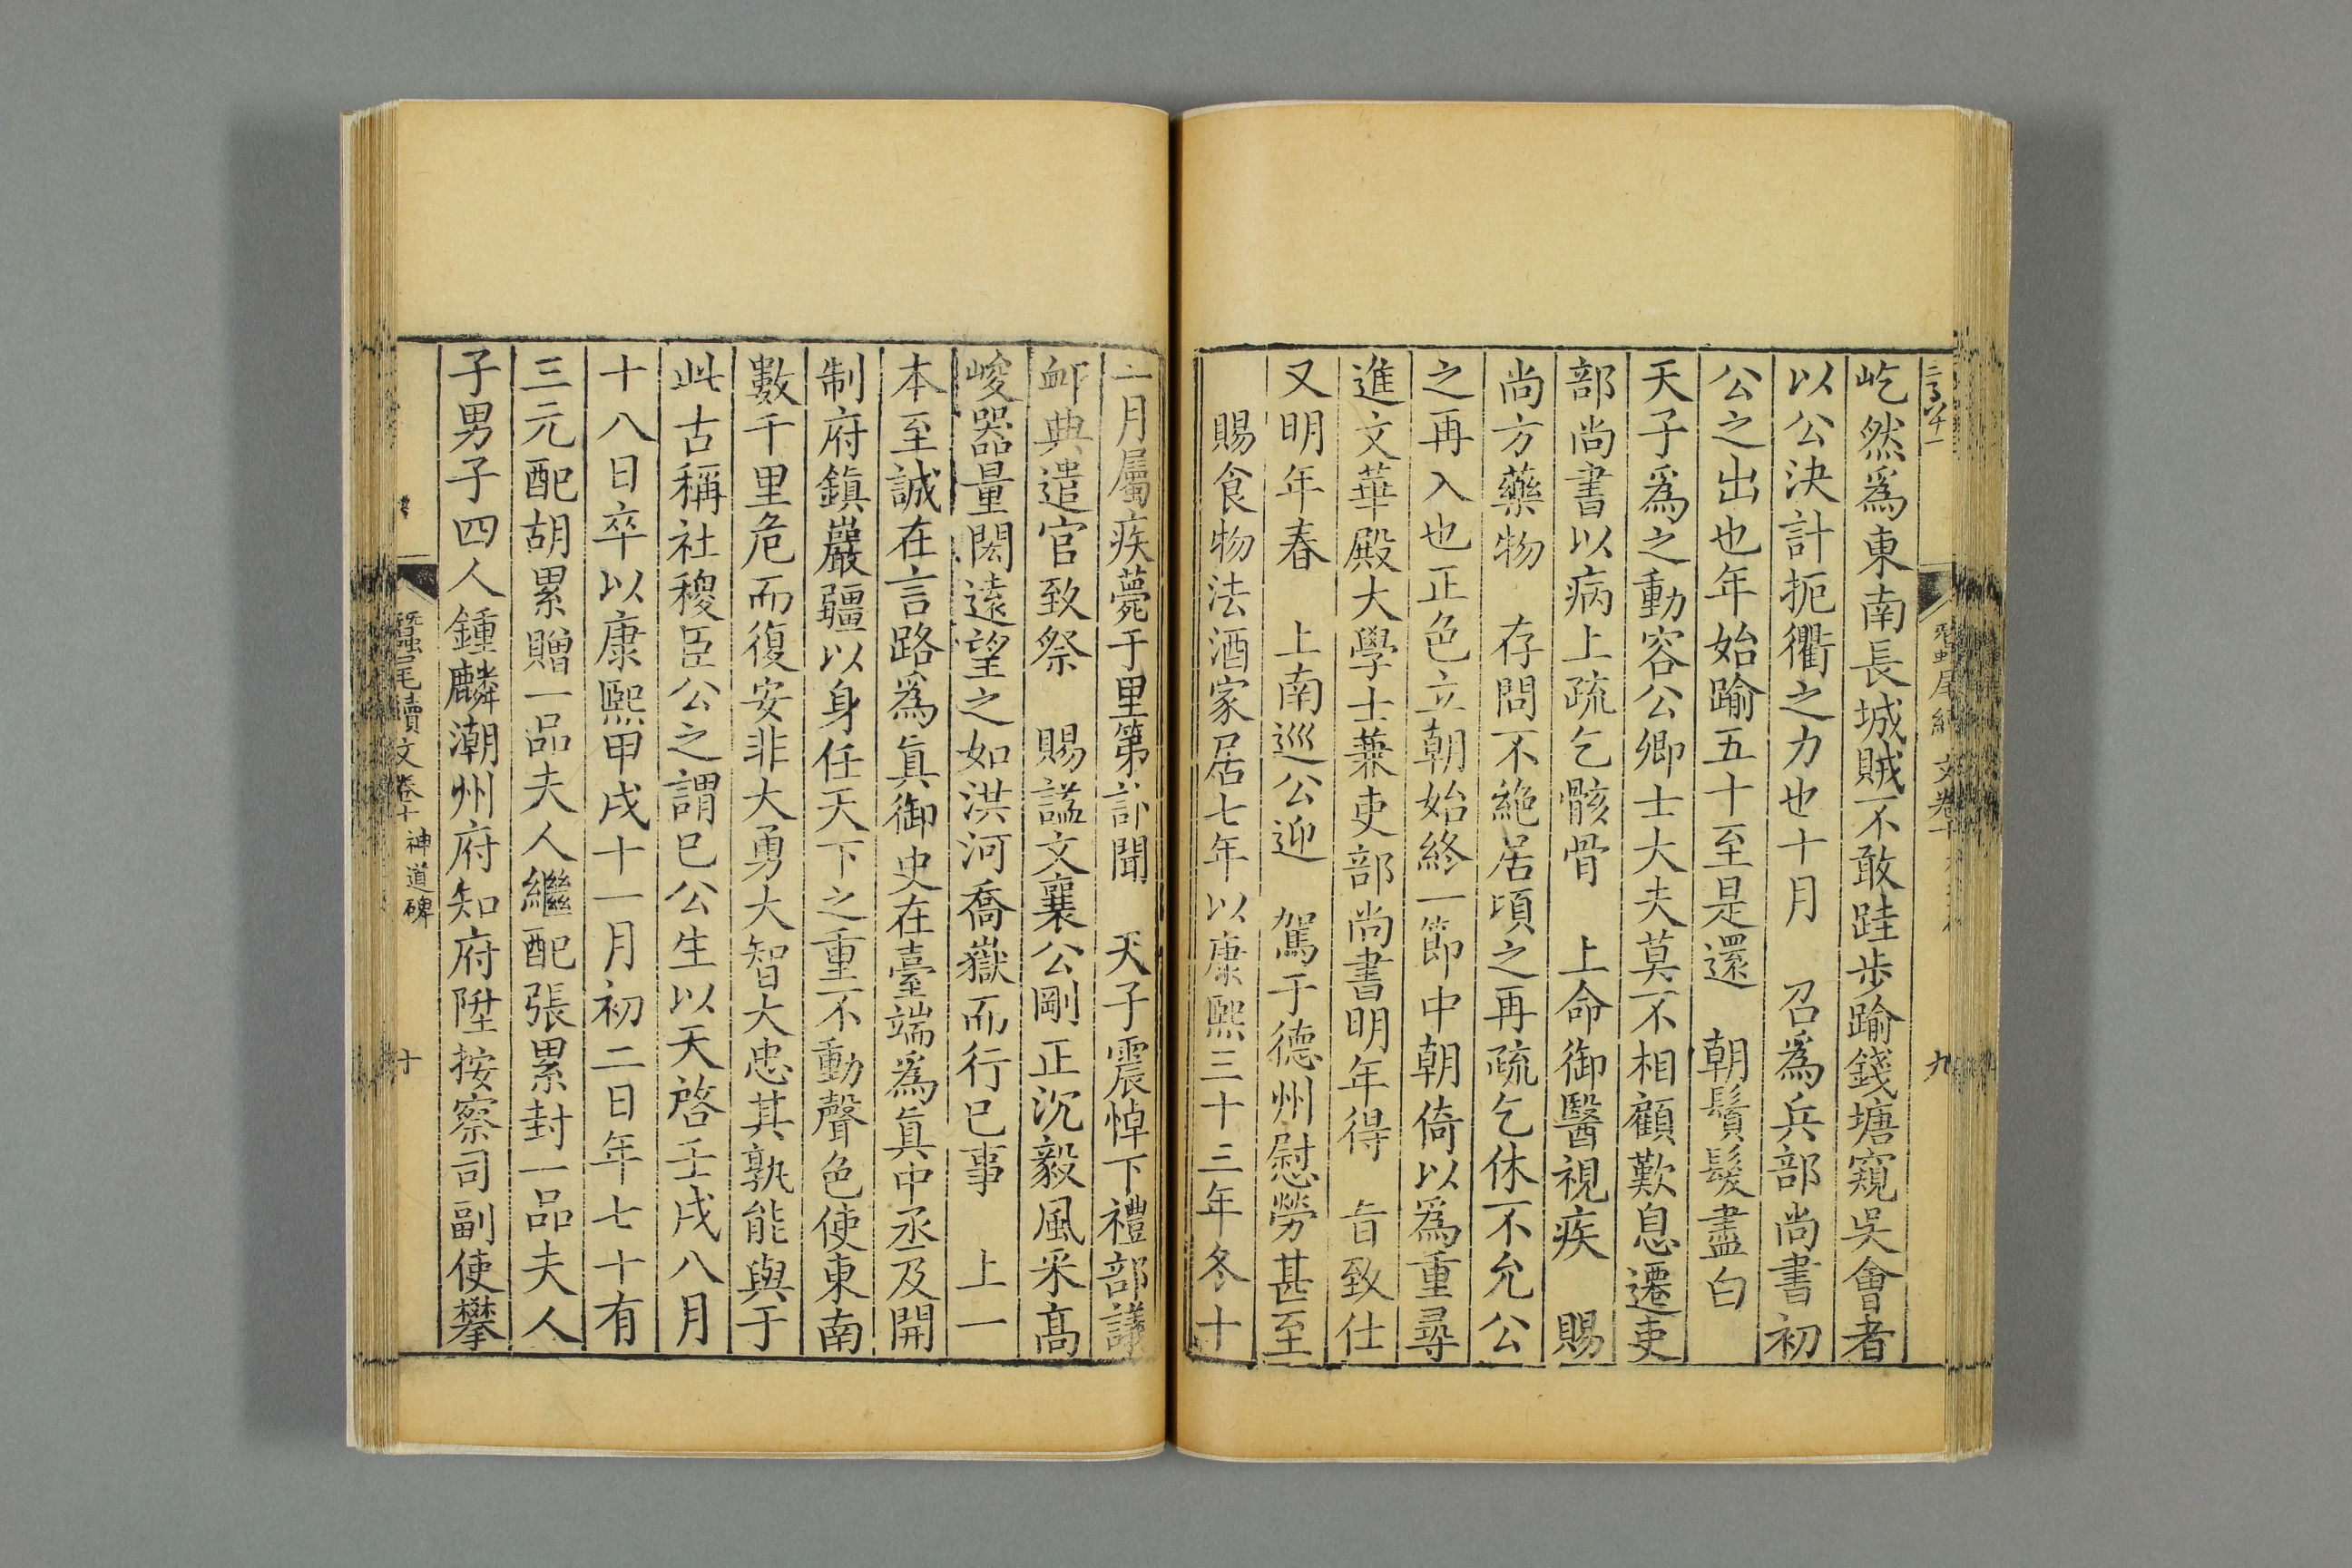 屹然爲東南長城賊不敢跬步踰錢塘窺吳會者
以公決計扼衢之力也十月　召爲兵部尚書初
公之出也年始踰五十至是還　朝鬚髮盡白
天子爲之動容公卿士大夫莫不相顧歎息遷吏
部尚書以病上疏乞骸骨　上命御醫視疾　賜
尚方藥物　存問不絶居頃之再疏乞休不允公
之再入也正色立朝始終一節中朝倚以爲重尋
進文華殿大學士兼吏部尚書明年得　旨致仕
又明年春　上南巡公迎　駕于德州慰勞甚至
賜食物法酒家居七年以康熙三十三年冬十
一月屬疾薨于里第訃聞　天子震悼下禮部議
卹典遣官致祭　賜諡文襄公剛正沉毅風采高
峻器量閎遠望之如洪河喬嶽而行已事　上一
本至誠在言路爲眞御史在臺端爲眞中丞及開
制府鎮巖疆以身任天下之重不動聲色使東南
數千里危而復安非大勇大智大忠其孰能與于
此古稱社稷臣公之謂已公生以天啓壬戌八月
十八日卒以康熙甲戌十一月初二日年七十有
三元配胡累贈一品夫人繼配張累封一品夫人
子男子四人鍾麟潮州府知府陞按察司副使攀
蠶尾續文卷十　神道碑　十
九